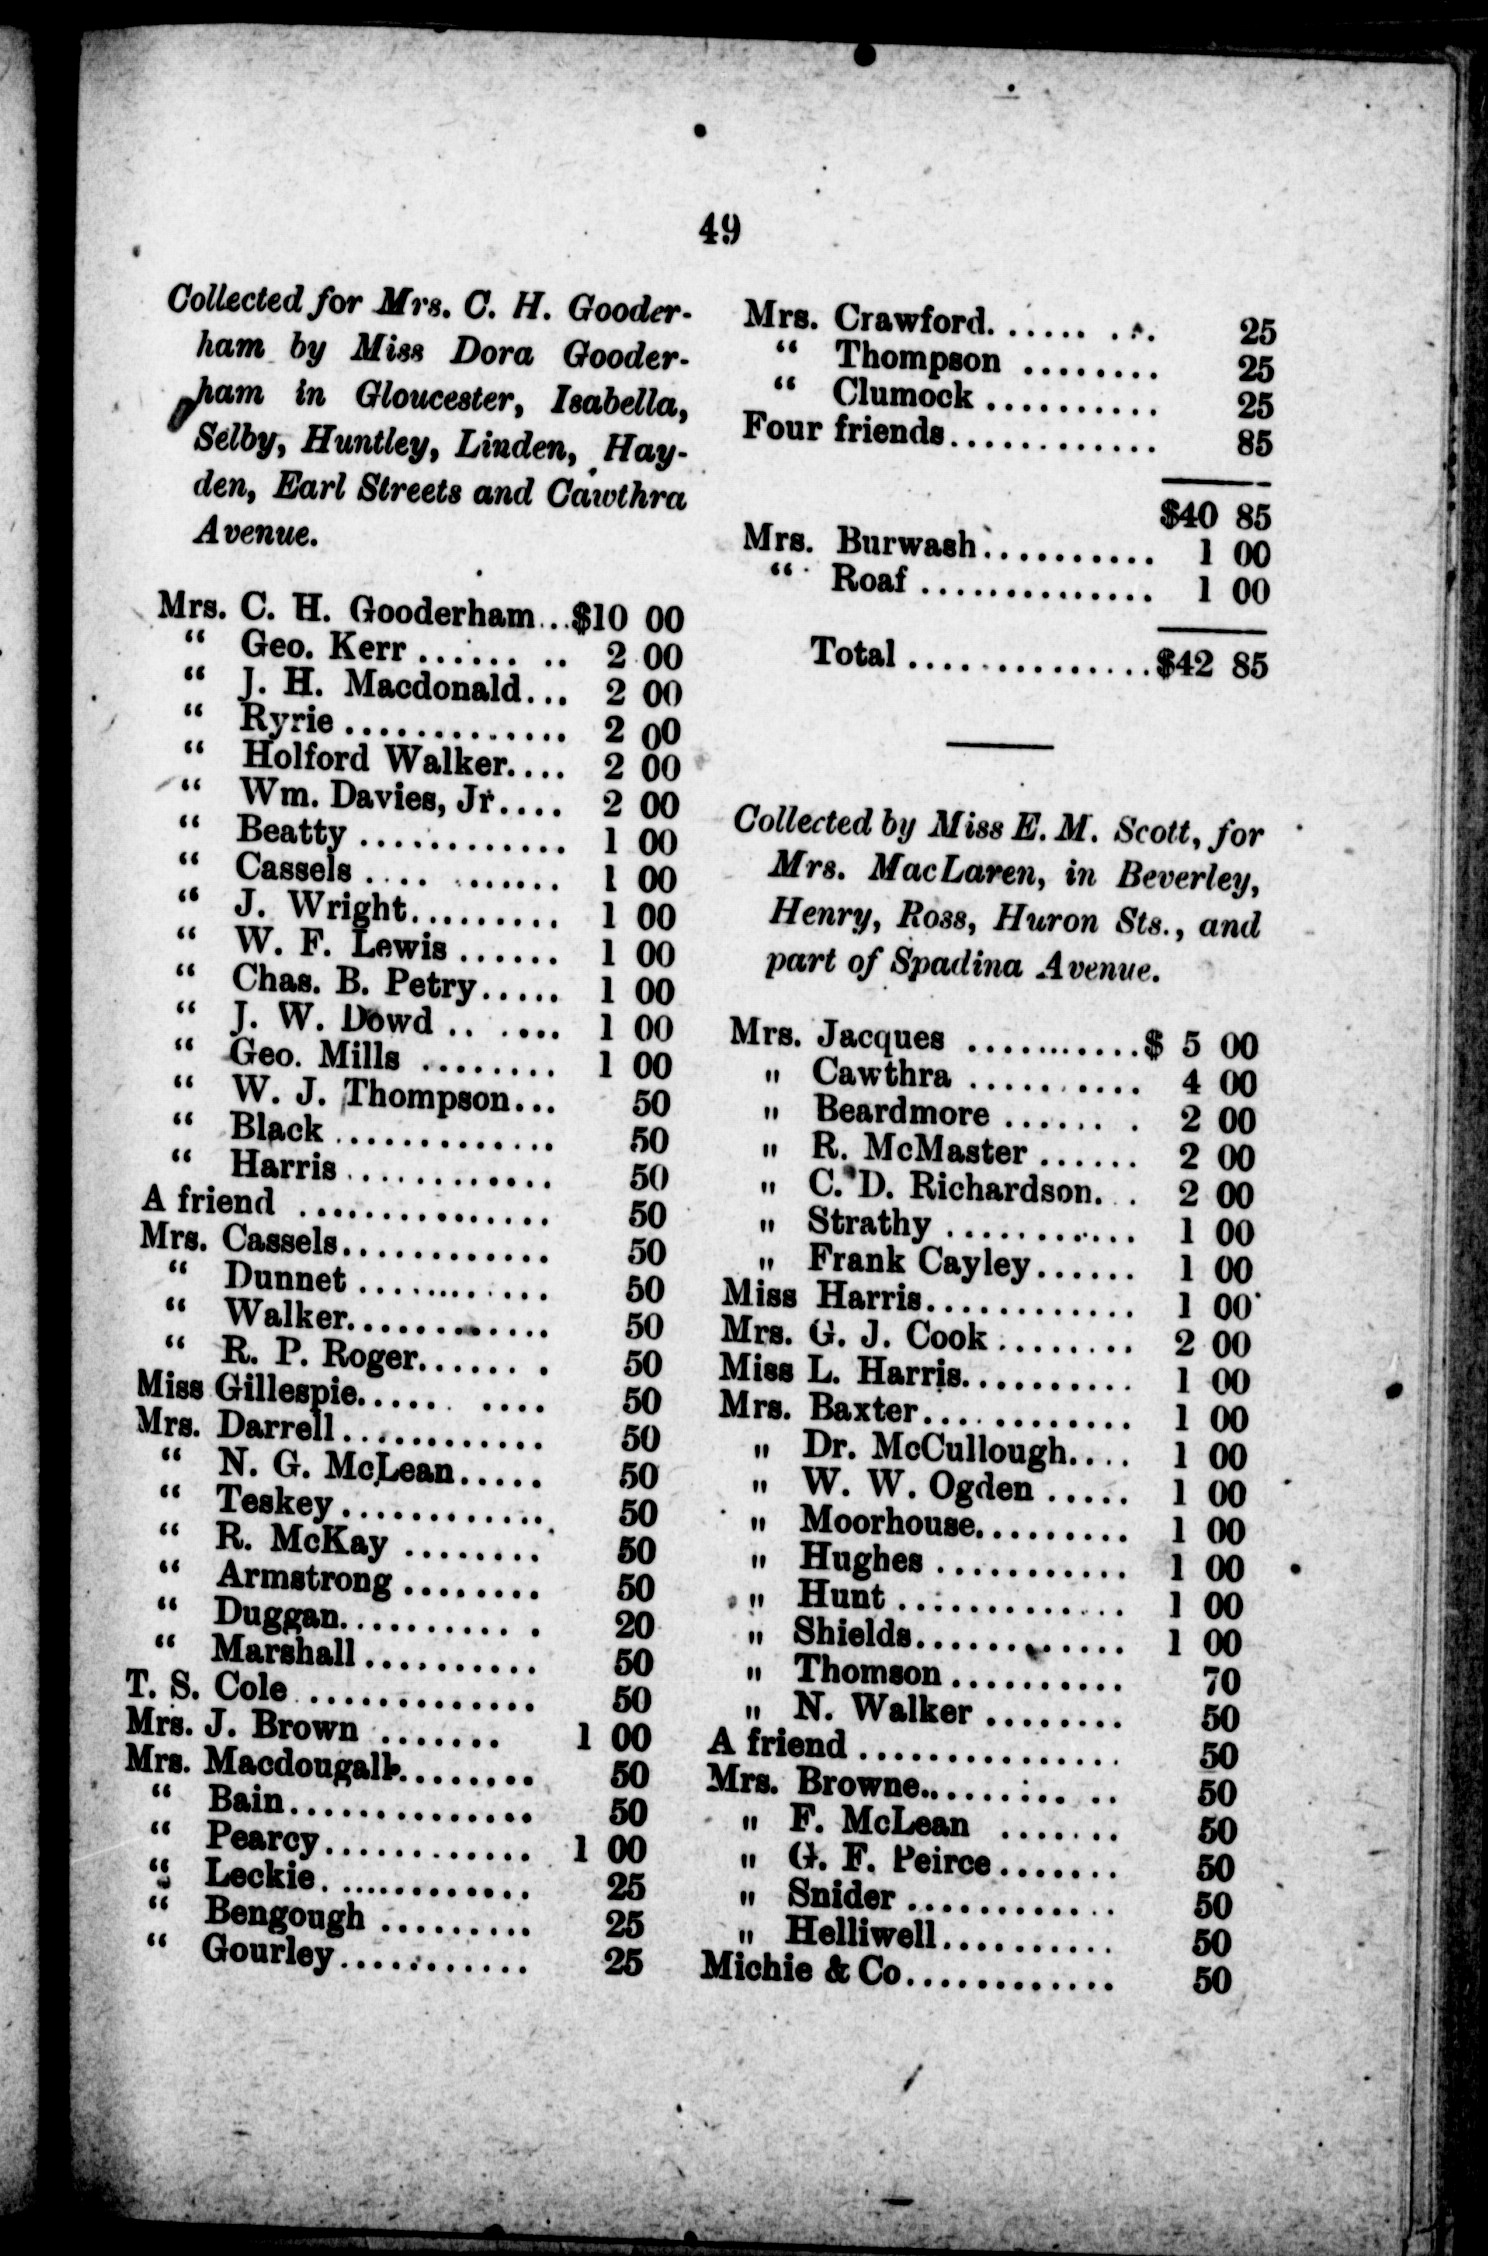 49
Collected for Mrs. C. H. Gooder-
ham by Miss Dora Gooder-
ham in Gloucester, Isabella,
Selby, Huntley, Linden, Hay-
den, Earl Streets and Cawthra
Avenue.
Mrs. C. H. Gooderham...$10 00
“ Geo. Kerr ........ 2 00
“ J. H. Macdonald... 2 00
“ Ryrie .............. 2 00
“ Holford Walker.... 2 00
“ Wm. Davies, Jr.... 2 00
“ Beatty ............. 1 00
“ Cassels ........... 1 00
“ J. Wright......... 1 00
“ W. F. Lewis ...... 1 00
“ Chas. B. Petry..... 1 00
“ J. W. Dowd ...... 1 00
“ Geo. Mills ........ 1 00
“ W. J. Thompson... 50
“ Black ............. 50
“ Harris ............ 50
A friend ............... 50
Mrs. Cassels............ 50
“ Dunnet ............ 50
“ Walker............. 50
“ R. P. Roger........ 50
Miss Gillespie.......... 50
Mrs. Darrell............ 50
“ N. G. McLean..... 50
“ Teskey............. 50
“ R. McKay ........ 50
“ Armstrong ........ 50
“ Duggan............ 20
“ Marshall .......... 50
T. S. Cole .............. 50
Mrs. J. Brown ....... 1 00
Mrs. Macdougall........ 50
“ Bain............... 50
“ Pearcy............. 1 00
“ Leckie............. 25
“ Bengough ......... 25
“ Gourley........... 25
Mrs. Crawford......... 25
“ Thompson ........ 25
“ Clumock .......... 25
Four friends............ 85
$40 85
Mrs. Burwash.......... 1 00
“ Roaf .............. 1 00
Total ...............$42 85
Collected by Miss E. M. Scott, for
Mrs. MacLaren, in Beverley,
Henry, Ross, Huron Sts., and
part of Spadina Avenue.
Mrs. Jacques ...........$ 5 00
" Cawthra .......... 4 00
" Beardmore ....... 2 00
" R. McMaster ...... 2 00
" C. D. Richardson... 2 00
" Strathy ............ 1 00
" Frank Cayley...... 1 00
Miss Harris............ 1 00
Mrs. G. J. Cook ........ 2 00
Miss L. Harris.......... 1 00
Mrs. Baxter............. 1 00
" Dr. McCullough.... 1 00
" W. W. Ogden ..... 1 00
" Moorhouse......... 1 00
" Hughes ........... 1 00
" Hunt ............. 1 00
" Shields............ 1 00
" Thomson .......... 70
" N. Walker ........ 50
A friend ............... 50
Mrs. Browne............ 50
" F. McLean ....... 50
" G. F. Peirce....... 50
" Snider ............ 50
" Helliwell.......... 50
Michie & Co............ 50